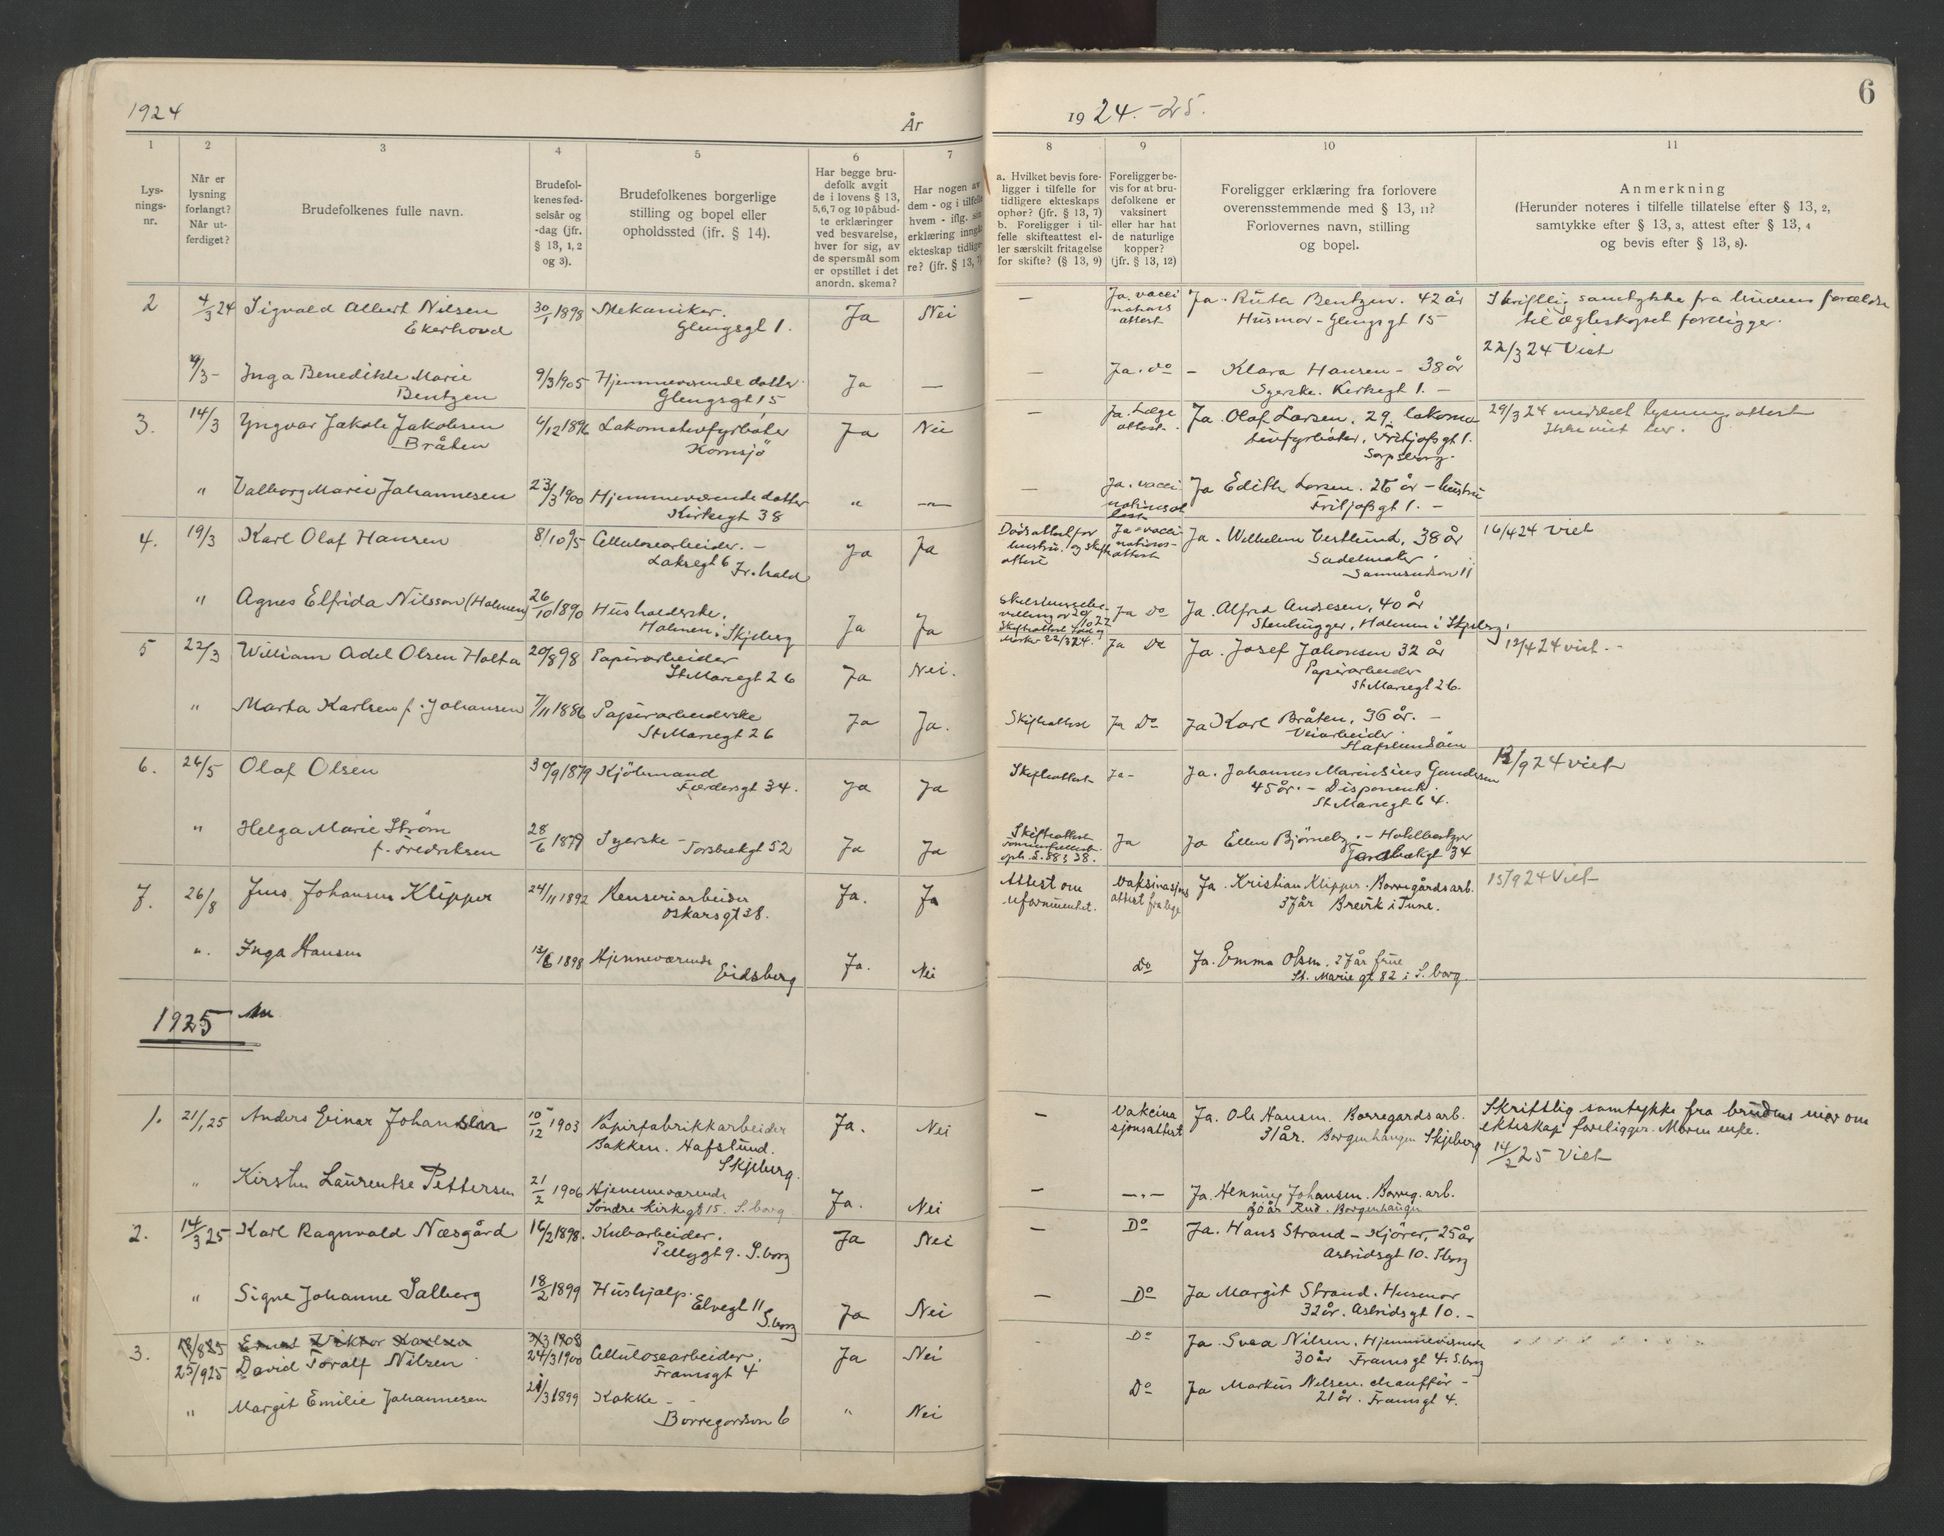 1924
År
1924.-25.
6
1
2
3
4
5
6
7
8
9
10
11
Lys-
nings-
nr.
Når er
lysning
forlangt?
Når ut-
ferdiget?
Brudefolkenes fulle navn.
Brudefol-
kenes fød-
selsår og
-dag (jfr.
§ 13, 1, 2
og 3).
Brudefolkenes borgerlige
stilling og bopel eller
opholdssted (ifr. § 14).
Har begge bru-
defolk avgit
de i lovens § 13,
5,6,7 og 10 påbud-
te erklæringer
ved besvarelse,
hver for sig, av
de spørsmål som
er opstillet i det
anordn. skema?
Har nogen av
dem - og i tilfelle
hvem - iflg. sin
erklæring inngå
ekteskap tidlige-
re? (jfr. § 13, 7)
a. Hvilket bevis fore-
ligger i tilfelle for
tidligere ekteskaps
ophør? (jfr. § 13, 7)
b. Foreligger i til-
felle skifteattest el-
ler særskilt fritagelse
for skifte? (§ 13, 9)
Foreligger be-
vis for at bru-
defolkene er
vaksinert
eller har hat
de naturlige
kopper?
(jfr. § 13, 12)
Foreligger erklæring fra forlovere
overensstemmende med § 13, 11?
Forlovernes navn, stilling
og bopel.
Anmerkning
(Herunder noteres i tilfelle tillatelse efter § 13, 2,
samtykke efter § 13, 3, attest efter § 13, 4
og bevis efter § 13, 8).
2 4/3 24 Sigvald Albert Nilsen 30/1 1898 Mekaniker. Ja Nei — Ja. vacci Ja. Ruth Bentzen. 42 år Skriftlig samtykke fra brudens forældre
Ekerhovd Glengsgt 1. nations Husmor - Glengsgt 15 - til ægteskapet foreligger.
attest 22/3 24 Viet
/3- Inga Benedikte Marie 9/3 1905 Hjemmeværende datter Ja — — Ja. do - Klara Hansen - 38 år
Bentzen Glengsgt 15 Syerske. Kirkegt 1. -
3. 14/3 Yngvar Jakobsen /12 1896 Lokomotivfyrbøter Ja Nei — Ja. Læge Ja. Olaf Larsen. 29. lokomo 29/3 24 meddelt lysningsattest
Bråten Kornsjö attest. tivfyrbøter. Fritjofsgt 1. Ikke viet her.
Sarpsborg.
" Valborg Marie Johannesen 23/3 1900 Hjemmeværende datter " — — Ja. vacci Ja Edith Larsen. 25 år - hustru
Kirkegt 38 Fritjofsgt 1. -
4. 19/3 Karl Olaf Hansen 8/10 95 Cellulosearbeider. - Ja Ja Dødsattest for Ja - vacci Ja. Wilhelm Vestlund, 38 år 16/4 24 viet
Laksegt 6 Fr.hald hustru og skifte nations- Sadelmaker
attest attest 11
" Agnes Elfrida Nilsson (Holmen) 26/10 1890 Husholderske. Ja Ja Ja Do Ja. Alfred Andresen, 40 år
Holmen i Skjeberg Stenhugger, Holmen i Skjeberg.
5 22/3 William Adel Olsen Holta 20/8 98 Papirarbeider Ja Nei. Ja Do Ja. Josef Johansen 32 år 12/4 24 viet. -
St Mariegt 26 Papirarbeider
St Mariegt 26.
" Marta Karlsen f. Johansen 7/11 1886 Papirarbeiderske Ja Ja. Skifteattest Ja Do Ja Karl Bråten, 36 år. -
St Mariegt 26 Veiarbeider
6. 26/5 Olaf Olsen 30/9 1879 Kjöbmand Ja Ja Skifteattest Ja - Ja. Johannes Marinius Gundersen 12/9 24 viet
Færdersgt 34. 45 år. - Disponent.
St Mariegt 64.
" Helga Marie Strøm 28/6 1879 Syerske - Ja Ja Skifteattest Ja Ja Ellen Bjørneby. - Hotelbestyrer
f. Fredriksen Torsbækgt 52 Torsbækgt 34
7. 26/8 Jens Johansen Klipper 24/11 1892 Renseriarbeider Ja. Ja Attest om Vaksinasjons Ja. Kristian Klipper. Borregårdsarb. 15/9 24 Viet
Oskarsgt 38. uformuenhet. attest fra læge 37 år Brevik i Tune.
". Inga Hansen 12/6 1898 Hjemmeværende Ja. Nei Do Ja. Emma Olsen. 27 år frue
Eidsberg St. Marie gt 82 i S.borg.
1925
1. 21/1 25 Anders Einar Johansen 10/12 1903 Papirfabrikkarbeider Ja. Nei — Vakcina Ja. Ole Hansen. Borregardsarb. Skriftlig samtykke fra brudens mor om
Bakken. Hafslund. sjonsattest 31 år. Borgenhaugen Skjeberg ekteskap foreligger. Moren enke.
Skjeberg. 14/2 25 Viet
" Kirsten Laurentse Pettersen 21/2 1906 Hjemmeværende Ja. Nei — —"— Ja. Henning Johansen. Borreg.arb.
Søndre Kirkegt 15. S.borg 30 år Rud. Borgenhaugen
2. 14/3 25 Karl Ragnvald Næsgård 16/2 1898. Kubarbeider. Ja Nei — Do Ja. Hans Strand - Kjører, 25 år
Pellygt 9. S.borg Astridsgt 10. Sborg
" Signe Johanne Salberg 18/2 1899 Hushjælp. Ja Nei — Do Ja Margit Strand. Husmor
Elvegt 11 S.borg 32 år. Astridsgt 10. -
3. 18/8 25 Ernst Viktor Karlsen 31/3 1908 Do Ja. Svea Nilsen. Hjemmeværende
25/9 25 David Toralf Nilsen 24/3 1900 Cellulosearbeider. Ja Nei 30 år Framsgt 4. S.borg
Framsgt 4
" Margit Emilie Johannesen 21/3 1899 Kokke - " Nei Do Ja Markus Nilsen. chauffør -
Borregardson 6 21 år. Framsgt 4.